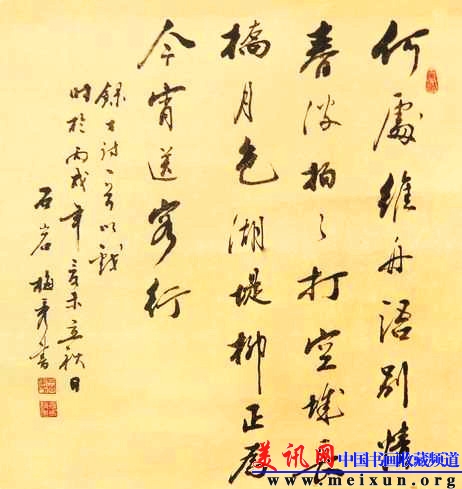 何處維舟語別情
春波拍々打空城長
橋月色湖堤柳正為
今宵送客行
錄古诗一首以
时於丙戌年未立秋日
石岩梅書
美讯网中国书画收藏频道
www.meixun.org